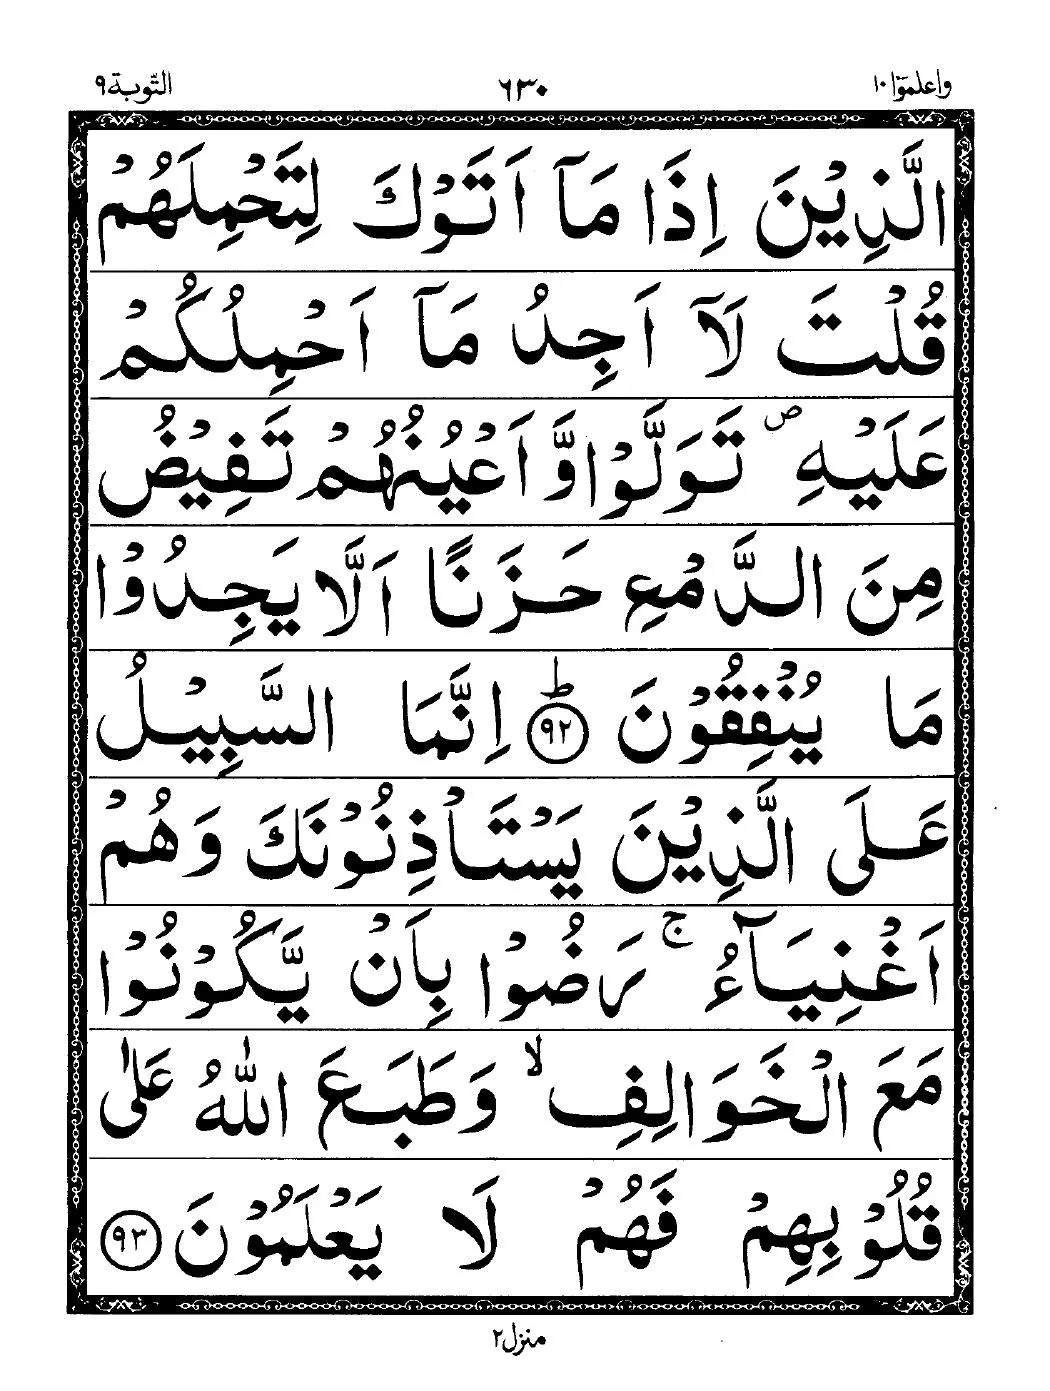 واعلموٓا ١٠ ٦٣٠ التّوبة ٩
الَّذِيْنَ اِذَا مَآ اَتَوْكَ لِتَحْمِلَهُمْ
قُلْتَ لَآ اَجِدُ مَآ اَحْمِلُكُمْ
عَلَيْهِ ۖ تَوَلَّوْا وَّ اَعْيُنُهُمْ تَفِيْضُ
مِنَ الدَّمْعِ حَزَنًا اَلَّا يَجِدُوْا
مَا يُنْفِقُوْنَ ؕ ﴿٩٢﴾ اِنَّمَا السَّبِيْلُ
عَلَى الَّذِيْنَ يَسْتَاْذِنُوْنَكَ وَهُمْ
اَغْنِيَآءُ ۚ رَضُوْا بِاَنْ يَّكُوْنُوْا
مَعَ الْخَوَالِفِ ۙ وَطَبَعَ اللّٰهُ عَلٰى
قُلُوْبِهِمْ فَهُمْ لَا يَعْلَمُوْنَ ﴿٩٣﴾
منزل ٢